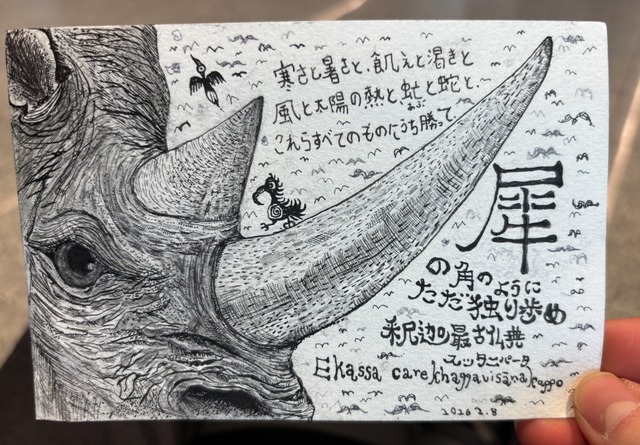 寒さと暑さと、飢えと渇きと
風と太陽の熱と虻と蛇と、
あぶ
これらすべてのものにうち勝って、
犀
の角の
ように
ただ独り歩め
釈迦の最古仏典
スッタニパータ
Ekassa care khaggavisāṇa kappo
2026 2.8